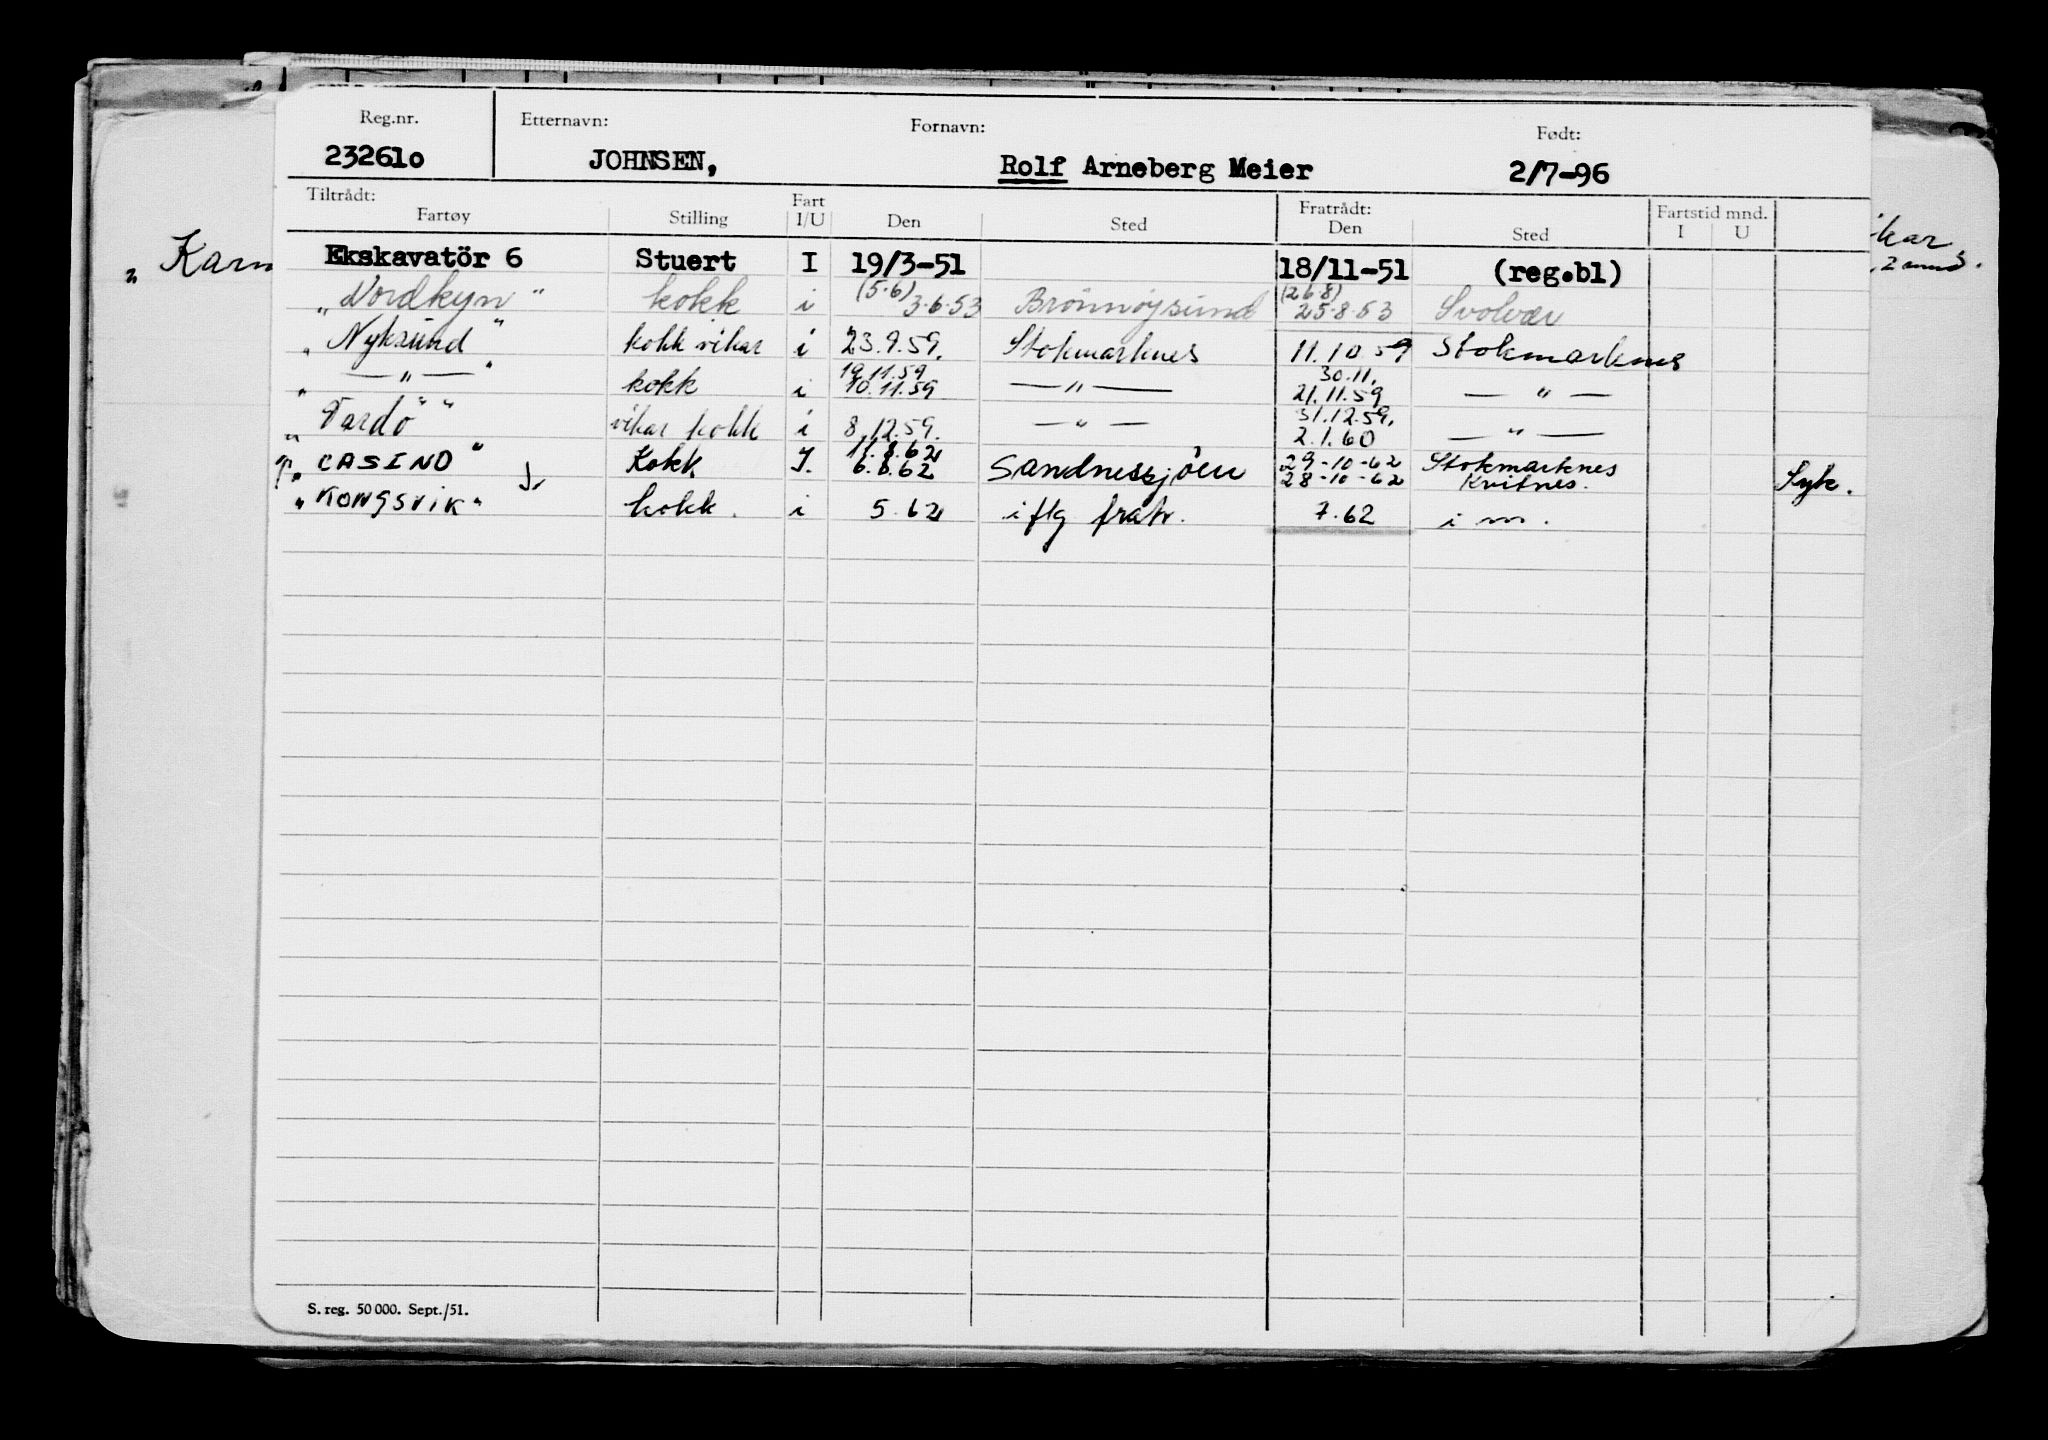 Reg.nr. Etternavn: Fornavn: Født:
232610 JOHNSEN, Rolf Arneberg Meier 2/7-96
Tiltrådt: Fratrådt: Fartstid mnd.
Fartøy Stilling Fart I/U Den Sted Den Sted I U
Ekskavatör 6 Stuert I 19/3-51 18/11-51 (reg.bl)
(5.6) (26.8)
„Nordkyn" kokk i 3.6.53 Brönnöysund 25.8.53 Svolvær
„Nyksund" kokk vikar i 23.9.59. Stokmarknes 11.10.59 Stokmarknes
19.11.59 30.11.
„ — „ — " kokk i 10.11.59 — „ — 21.11.59 — „ —
31.12.59.
„Vardö" vikar kokk i 8.12.59. — „ — 2.1.60 — „ —
11.8.62 29-10-62 Stokmarknes
„CASINO" Kokk I. 6.8.62 Sandnessjöen 28-10-62 Kvitnes. Syk.
„KONGSVIK" kokk. i 5.62 iflg fratr. 7.62 i m.
„ Karm
S. reg. 50 000. Sept./51.